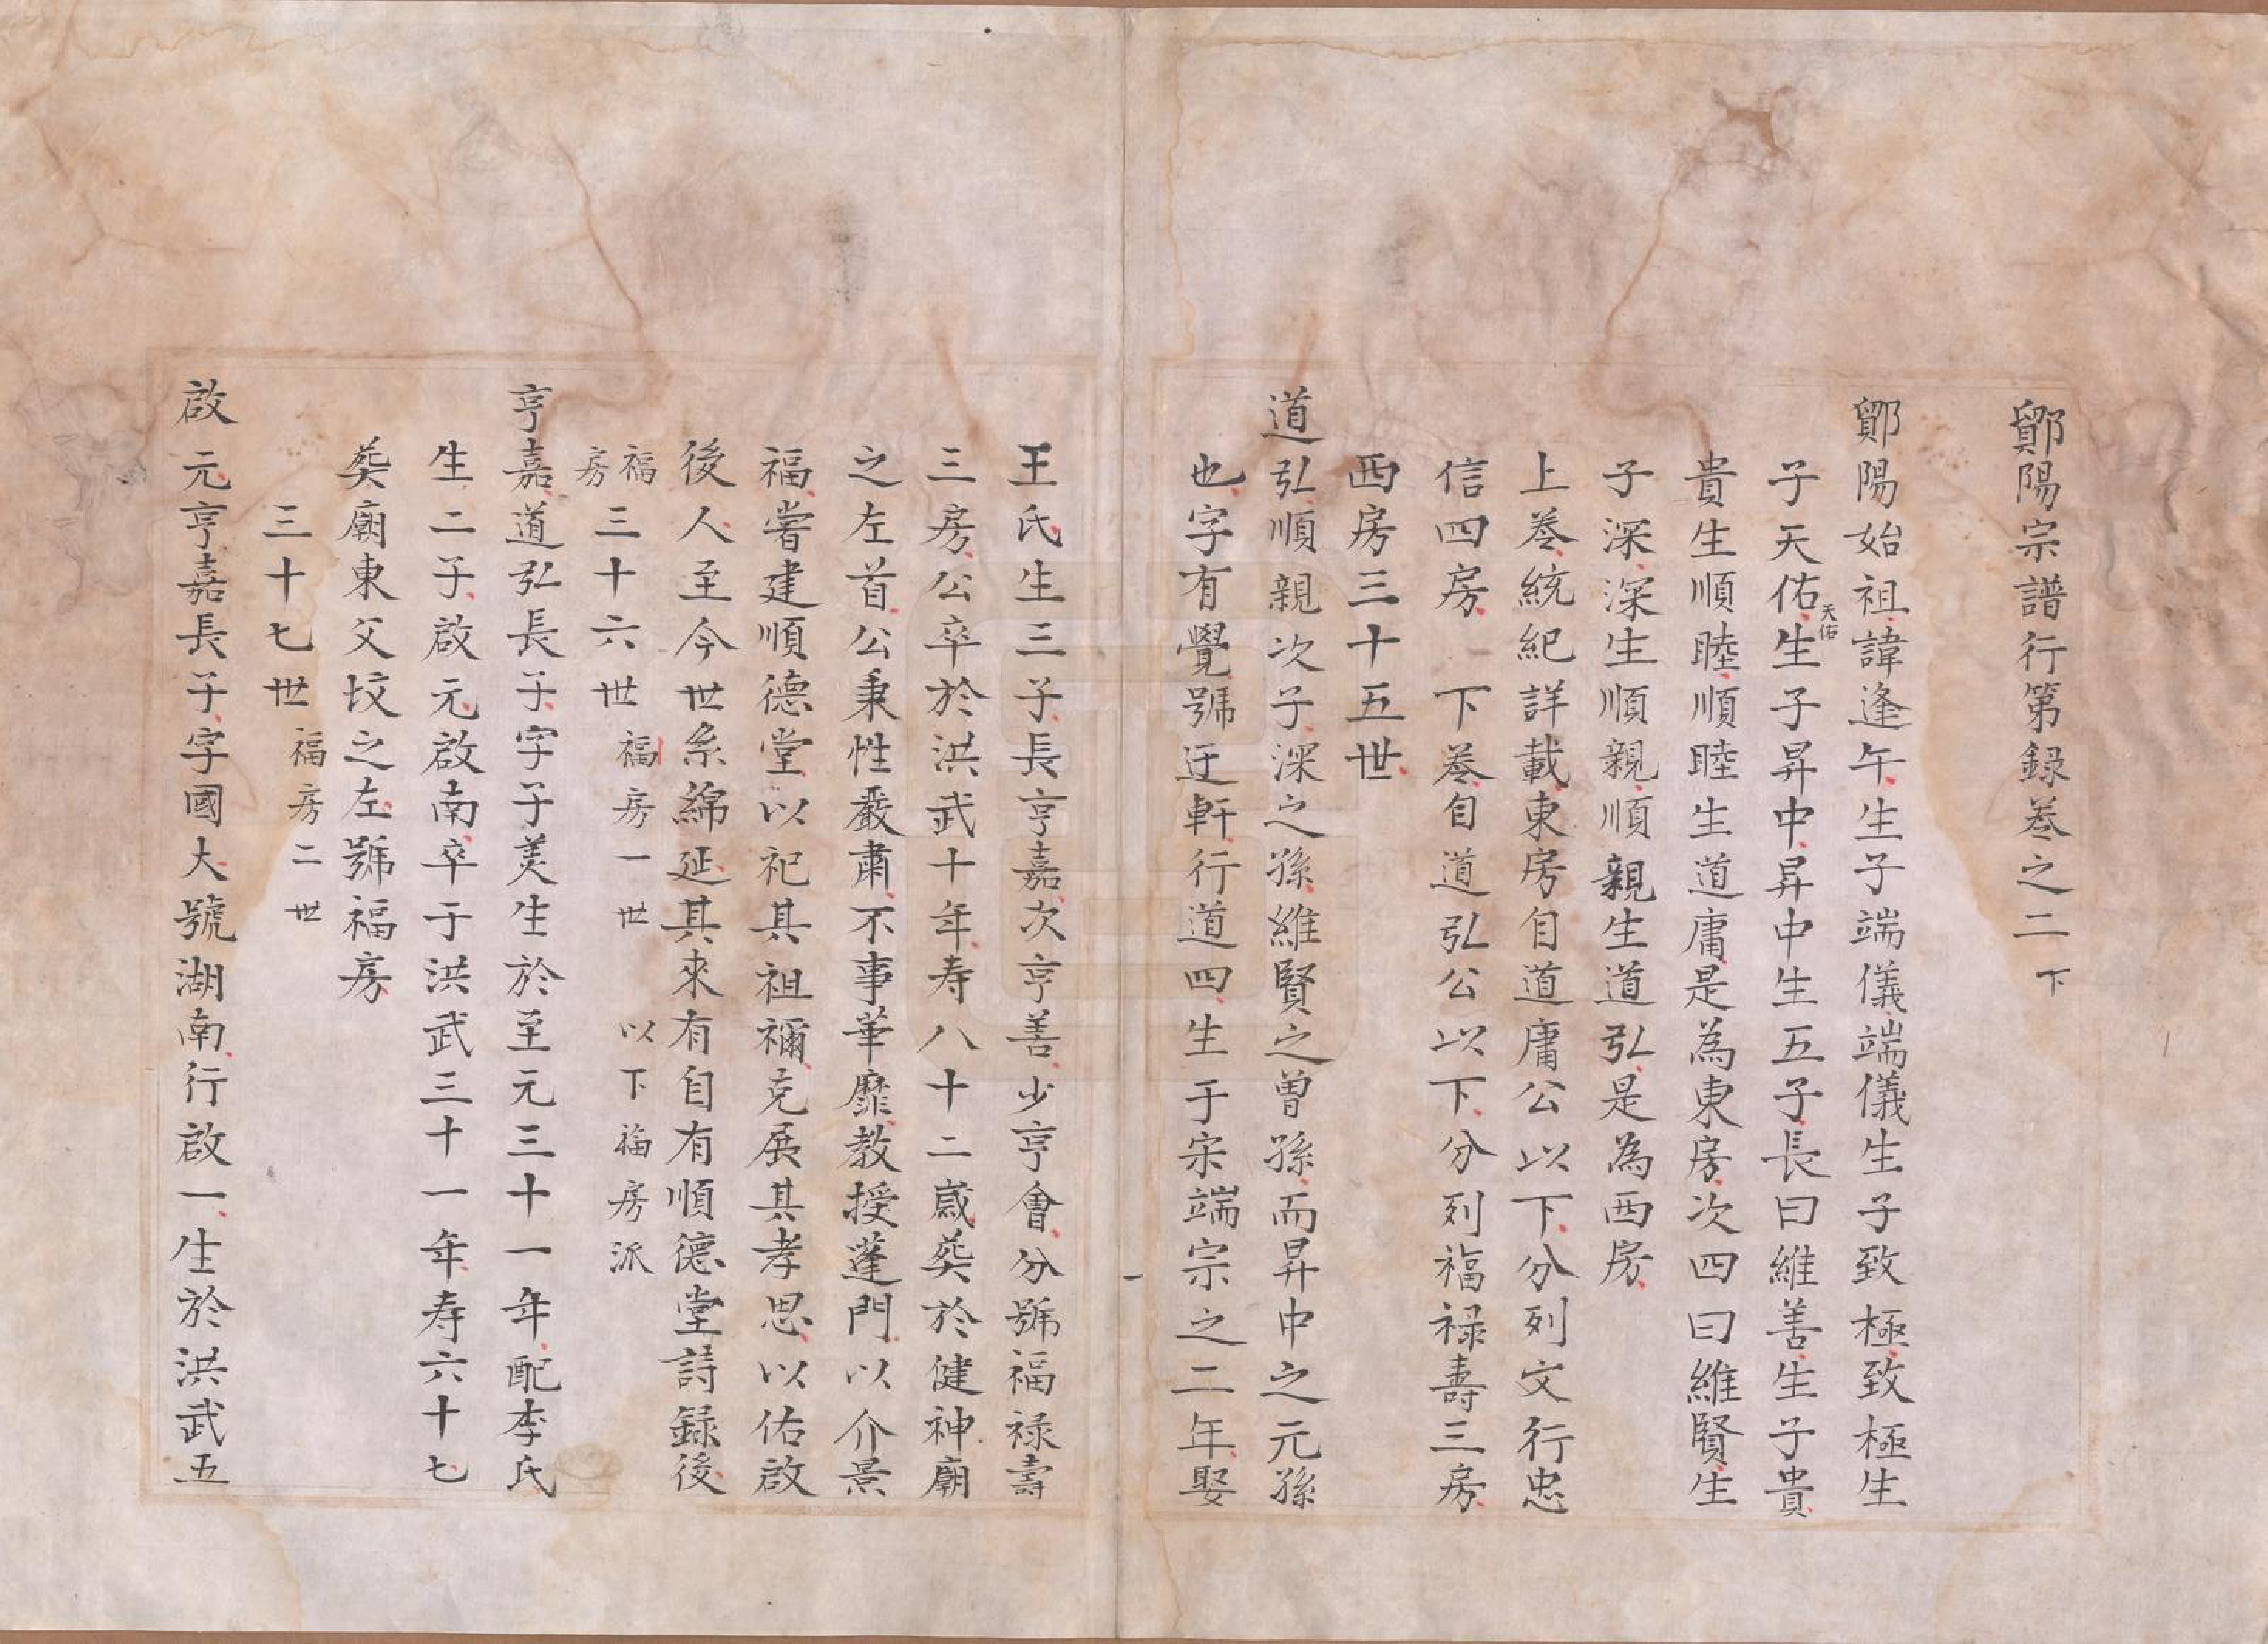 鄮陽宗譜行第録卷之二 下
鄮陽始祖諱逢午生子端儀端儀生子致極致極生
子天佑天佑生子昇中昇中生五子長曰維善生子貴
貴生順睦順睦生道庸是為東房次四曰維賢生
子深深生順親順親生道弘是為西房
上卷統紀詳載東房自道庸公以下分列文行忠
信四房 下卷自道弘公以下分列福禄壽三房
西房三十五世
道弘順親次子深之孫維賢之曽孫而昇中之元孫
也字有覺號迂軒行道四生于宋端宗之二年娶
王氏生三子長亨嘉次亨善少亨會分號福禄壽
三房公卒於洪武十年寿八十二歲葬於健神廟
之左首公秉性嚴肅不事華靡教授蓬門以介景
福嘗建順德堂以祀其祖禰克展其孝思以佑啟
後人至今世系綿延其來有自有順德堂詩録後
福房 三十六世 福房一世 以下福房派
亨嘉道弘長子字子美生於至元三十一年配李氏
生二子啟元啟南卒于洪武三十一年寿六十七
葬廟東父坟之左號福房
三十七世 福房二世
啟元亨嘉長子字國大號湖南行啟一生於洪武五